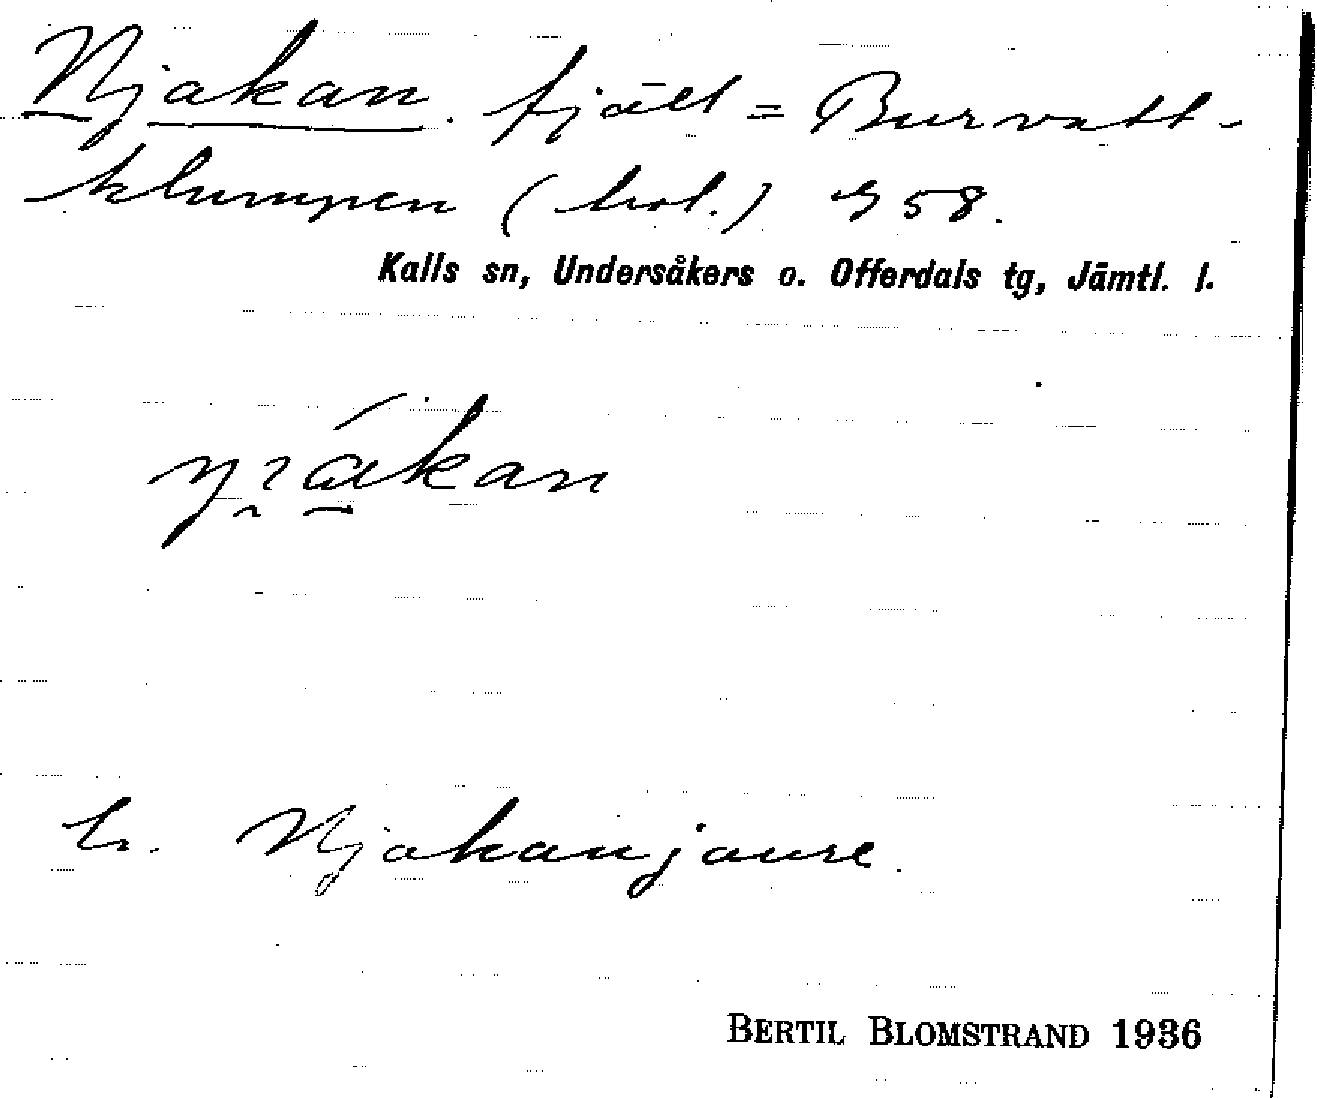 Njakan. fjäll = Burvatt-
klumpen ( kol. ) 958.
Kalls sn, Undersåkers o. Offerdals tg, Jämtl. l.
Njakanjaure.
BERTIL BLOMSTRAND 1936